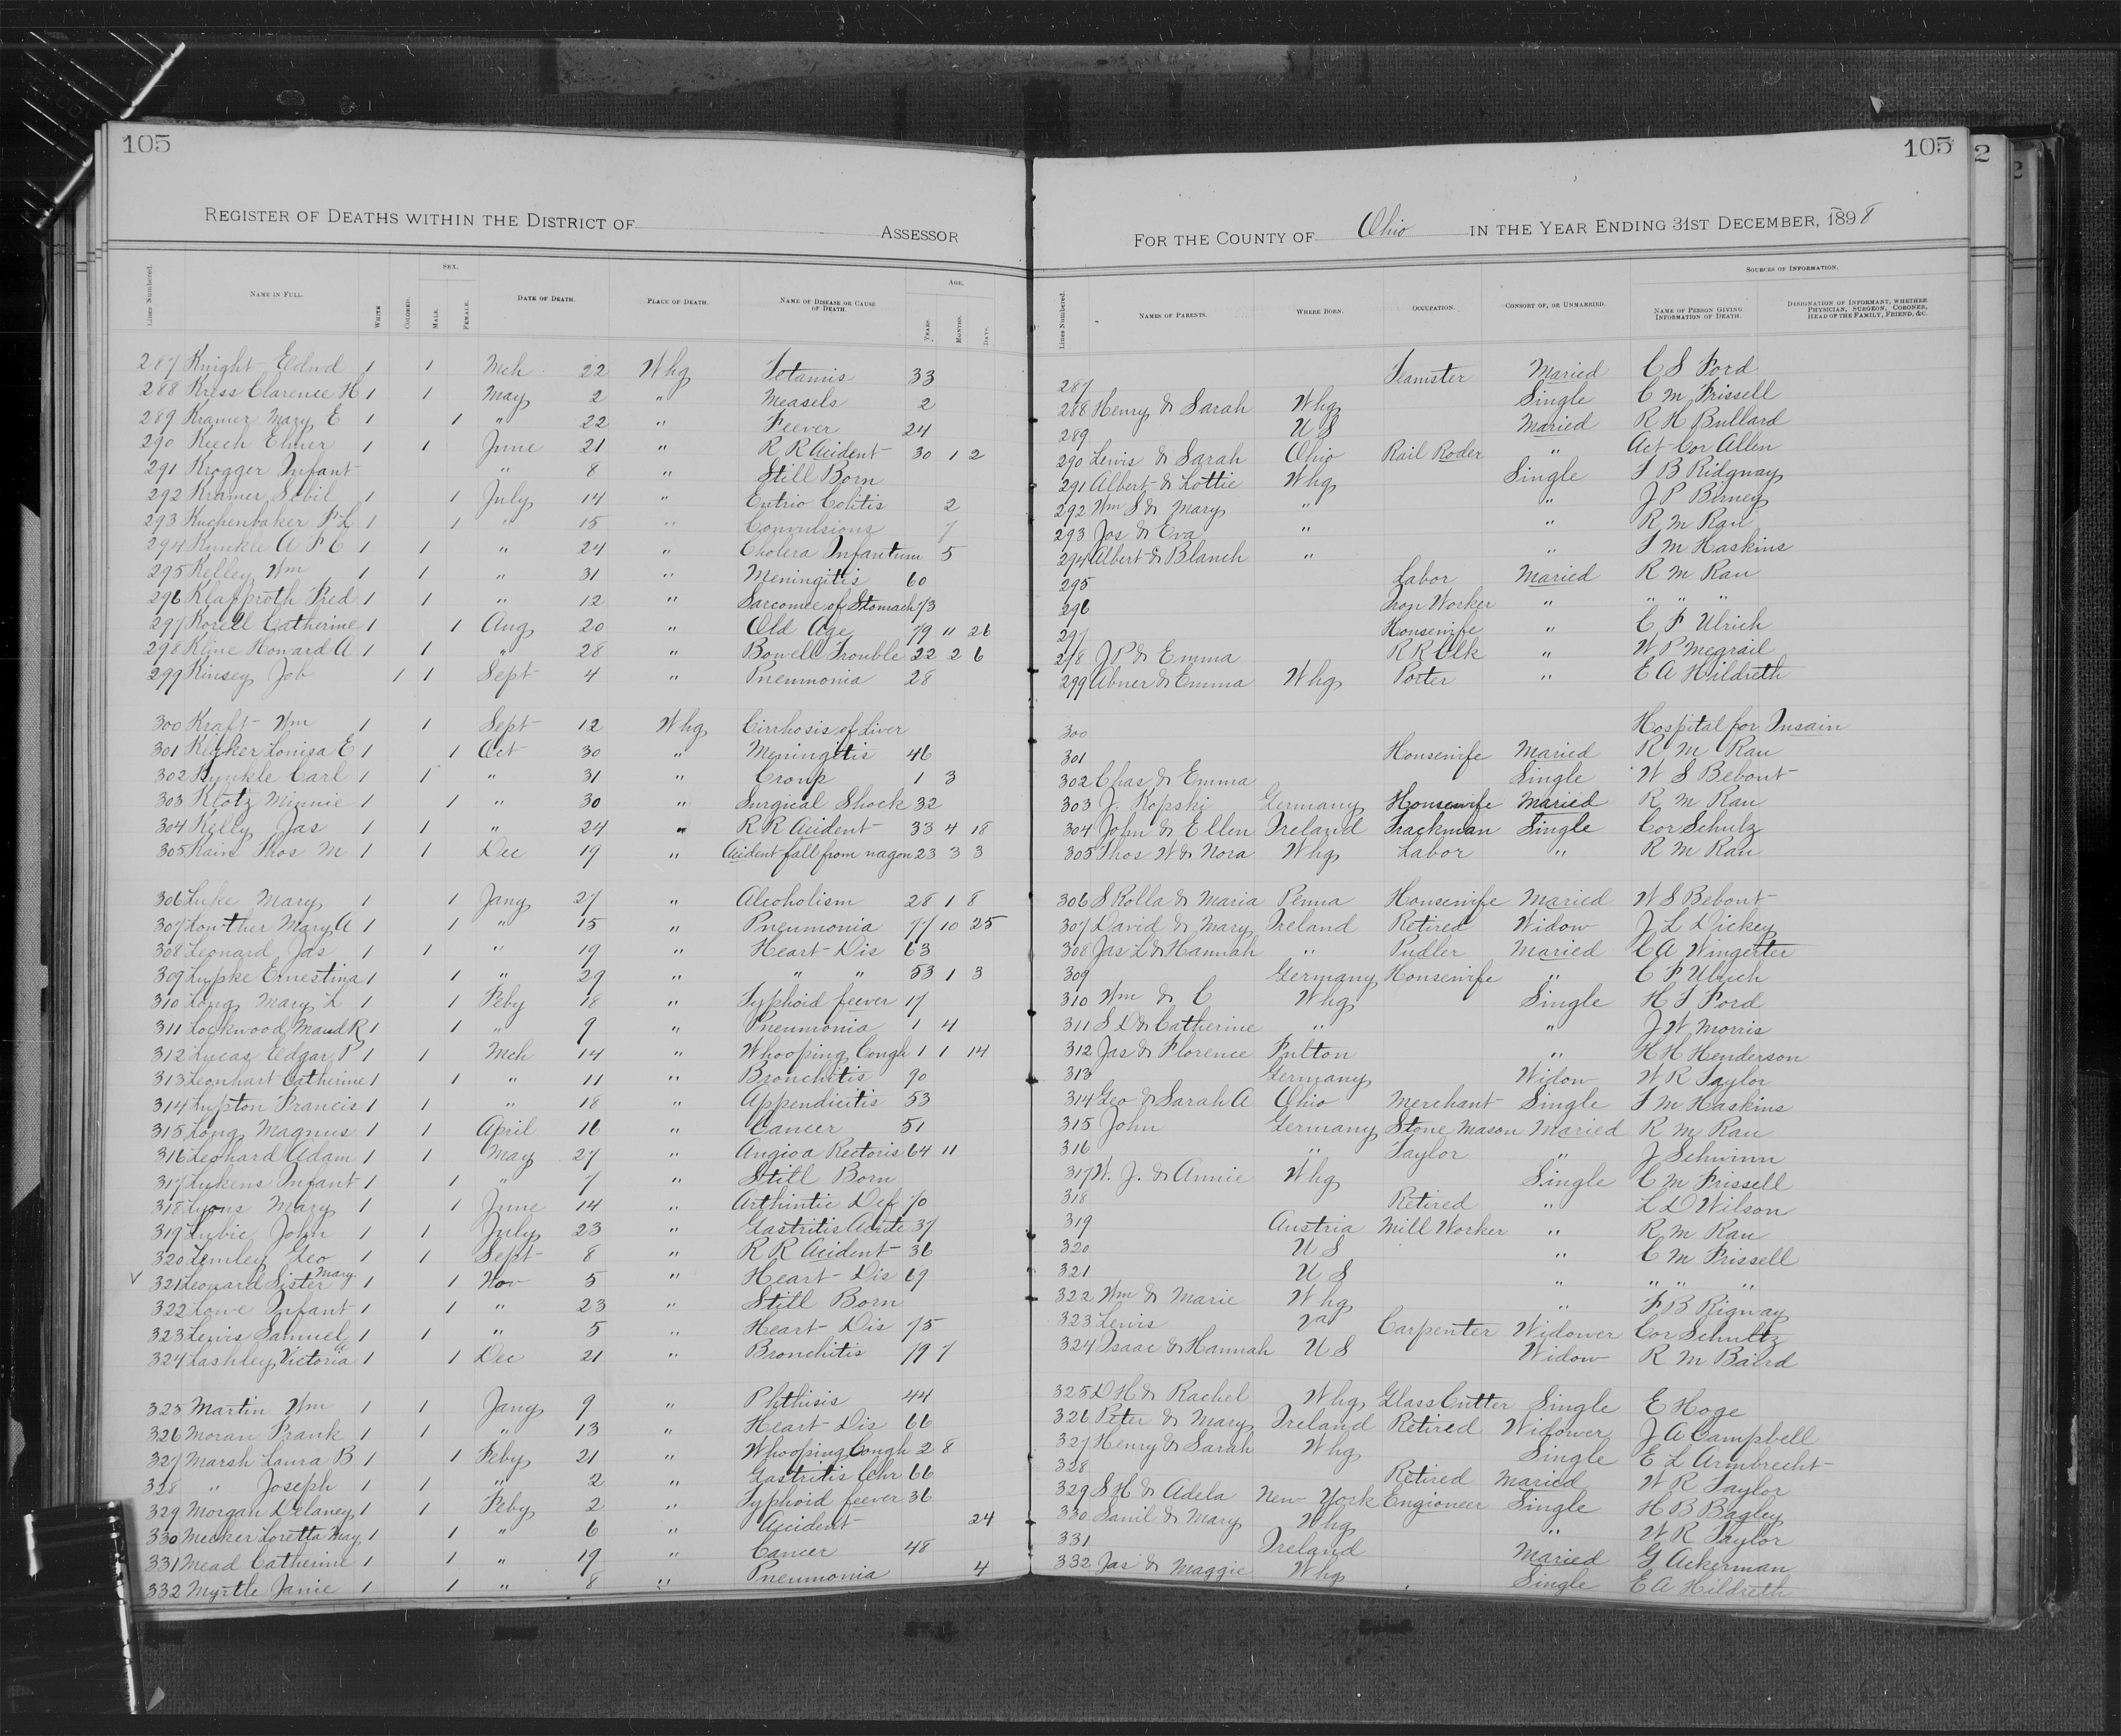 105
REGISTER OF DEATHS WITHIN THE DISTRICT OF ASSESSOR
Lines Numbered. NAME IN FULL. WHITE COLORED. SEX. MALE. FEMALE. DATE OF DEATH. PLACE OF DEATH. NAME OF DISEASE OR CAUSE OF DEATH. AGE. YEARS. MONTHS. DAYS.
287 Knight Edwd 1 1 Mch 22 Whg Totamis 33
288 Kress Clarence H 1 1 May 2 " Measels 2
289 Kramer Mary E 1 1 " 22 " Feever 24
290 Keech Elmer 1 1 June 21 " R R Acident 30 1 2
291 Krogger Infant " 8 " Still Born
292 Kramer Sebil 1 1 July 14 " Entrio Colitis 2
293 Kuchenbaker P L 1 1 " 15 " Convulsions 7
294 Kunkle A F C 1 1 " 24 " Cholera Infantum 5
295 Kelley Wm 1 1 " 31 " Meningitis 60
296 Klapproth Fred 1 1 " 12 " Sarcomee of Stomach 73
297 Korell Catherine 1 1 Aug 20 " Old Age 79 11 26
298 Kline Howard A 1 1 " 28 " Bowell Trouble 22 2 6
299 Kinsey Job 1 1 Sept 4 " Pneumonia 28
300 Kraft Wm 1 1 Sept 12 Whg Cirrhosis of Liver
301 Louisa E 1 1 Oct 30 " Meningitis 46
302 Kunkle Carl 1 1 " 31 " Croup 1 3
303 Klotz Minnie 1 1 " 30 " Surgical Shock 32
304 Kelly Jas 1 1 " 24 " R R Acident 33 4 18
305 Kain Thos M 1 1 Dec 19 " Acident fall from wagon 23 3 3
306 Luke Mary 1 1 Jany 27 " Alcoholism 28 1 8
307 Lowther Mary A 1 1 " 15 " Pneumonia 77 10 25
308 Leonard Jas 1 1 " 19 " Heart Dis 63
309 Lupke Ernestina 1 1 " 29 " " " 53 1 3
310 Long Mary L 1 1 Feby 18 " Typhoid feever 17
311 Lockwood Maud R 1 1 " 9 " Pneumonia 1 4
312 Lucas Edgar P 1 1 Mch 14 " Whooping Cough 1 1 14
313 Leonhart Catherine 1 1 " 11 " Bronchitis 90
314 Lupton Francis 1 1 " 18 " Appendicitis 53
315 Long Magnus 1 1 April 16 " Cancer 51
316 Leonard Adam 1 1 May 27 " Angioa Rectoris 64 11
317 Lukens Infant 1 1 " 7 " Still Born
318 Lyons Mary 1 1 June 14 " Arthintic Def 70
319 Lubic John 1 1 July 23 " Gastritis Acute 37
320 Lemley Geo 1 1 Sept 8 " R R Acident 36
v 321 Leonard Sister Mary 1 1 Nov 5 " Heart Dis 69
322 Lowe Infant 1 1 " 23 " Still Born
323 Lewis Samuel 1 1 " 5 " Heart Dis 75
324 Lashley Victoria A 1 1 Dec 21 " Bronchitis 79 7
325 Martin Wm 1 1 Jany 9 " Phthisis 44
326 Moran Frank 1 1 " 13 " Heart Dis 66
327 Marsh Laura B 1 1 Feby 21 " Whooping Cough 2 8
328 " Joseph 1 1 " 2 " Gastritis Chr 66
329 Morgan Delaney 1 1 Feby 2 " Typhoid feever 36
330 Meeker Loretta May 1 1 " 6 " Accident 24
331 Mead Catherine 1 1 " 19 " Cancer 48
332 Myrtle Janie 1 1 " 8 " Pneumonia 4
105
2
FOR THE COUNTY OF Ohio IN THE YEAR ENDING 31ST DECEMBER, 1898
Lines Numbered. NAMES OF PARENTS. WHERE BORN. OCCUPATION. CONSORT OF, OR UNMARRIED. SOURCES OF INFORMATION. NAME OF PERSON GIVING INFORMATION OF DEATH. DESIGNATION OF INFORMANT, WHETHER PHYSICIAN, SURGEON, CORONER, HEAD OF THE FAMILY, FRIEND, &C.
287 Teamster Maried C S Ford
288 Henry & Sarah Whg Single C M Frissell
289 U S Maried R H Bullard
290 Lewis & Sarah Ohio Rail Roder " Act Cor Allen
291 Albert & Lottie Whg Single F B Ridgway
292 Wm S & Mary " " J P Birney
293 Jos & Eva " " R M Rau
294 Albert & Blanch " " T M Haskins
295 Labor Maried R M Rau
296 Iron Worker " " " "
297 Housewife " C F Ulrich
298 J P & Emma R R Clk " W P Megrail
299 Abner & Emma Whg Porter " E A Hildreth
300 Hospital for Insain
301 Housewife Maried R M Rau
302 Chas & Emma Single W S Bebout
303 J. Kopski Germany Housewife Maried R M Rau
304 John & Ellen Ireland Trackman Single Cor Schulz
305 Thos W & Nora Whg Labor " R M Rau
306 S Rolla & Maria Penna Housewife Maried W S Bebout
307 David & Mary Ireland Retired Widow J L Dickey
308 Jas L & Hannah " Pudler Maried C A Wingetter
309 Germany Housewife " C F Ulrich
310 Wm & C Whg Single H T Ford
311 S D & Catherine " " J W Morris
312 Jas & Florence Fulton " H H Henderson
313 Germany Widow W R Taylor
314 Geo & Sarah A Ohio Merchant Single T M Haskins
315 John Germany Stone Mason Maried R M Rau
316 " Taylor " J Schwinn
317 W. J. & Annie Whg Single C M Frissell
318 Retired " L D Wilson
319 Austria Mill Worker " R M Rau
320 U S " C M Frissell
321 U S " " " "
322 Wm & Marie Whg " F B Rigway
323 Lewis Va Carpenter Widower Cor Schultz
324 Isaac & Hannah U S Widow R M Baird
325 D H & Rachel Whg Glass Cutter Single E Hoge
326 Peter & Mary Ireland Retired Widower J A Campbell
327 Henry & Sarah Whg Single E L Armbrecht
328 Retired Maried W R Taylor
329 S H & Adela New York Engioneer Single H B Bagley
330 Sanil & Mary Whg " W R Taylor
331 Ireland Maried G Ackerman
332 Jas & Maggie Whg Single E A Hildreth